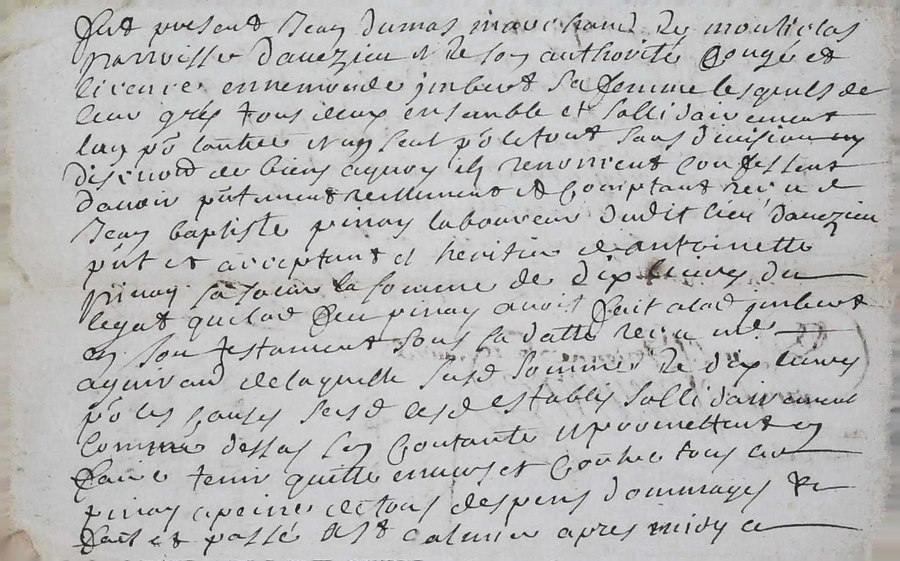 fut present Jean dumas marchand de monticlas
parroisse davezieu et de son authorité Congé et
licence ennemonde jmbert sa femme lesquels de
leur grés tous deux ensemble et sollidairement
lun po lautre un seul po le tout sans division ny
discution de biens aquoy ils renoncent confessent
davoir pntement reellement et Comptant receu de
Jean baptiste pinay laboureur dudit lieu davezieu
pnt et acceptant et heritier de antoinette
pinay sa soeur la somme de dix livres du
legat que lad feu pinay avoit fait a lad jmbert
en son testament sous la datte receu me
de laquelle susd somme de dix livres
po les causes susd lesd establis sollidairement
comme dessus sen Contante et promettent en
faire tenir quitte envers et Contre tous led
pinay a peine de tous despens dommages &
fait et passé aud apres midy